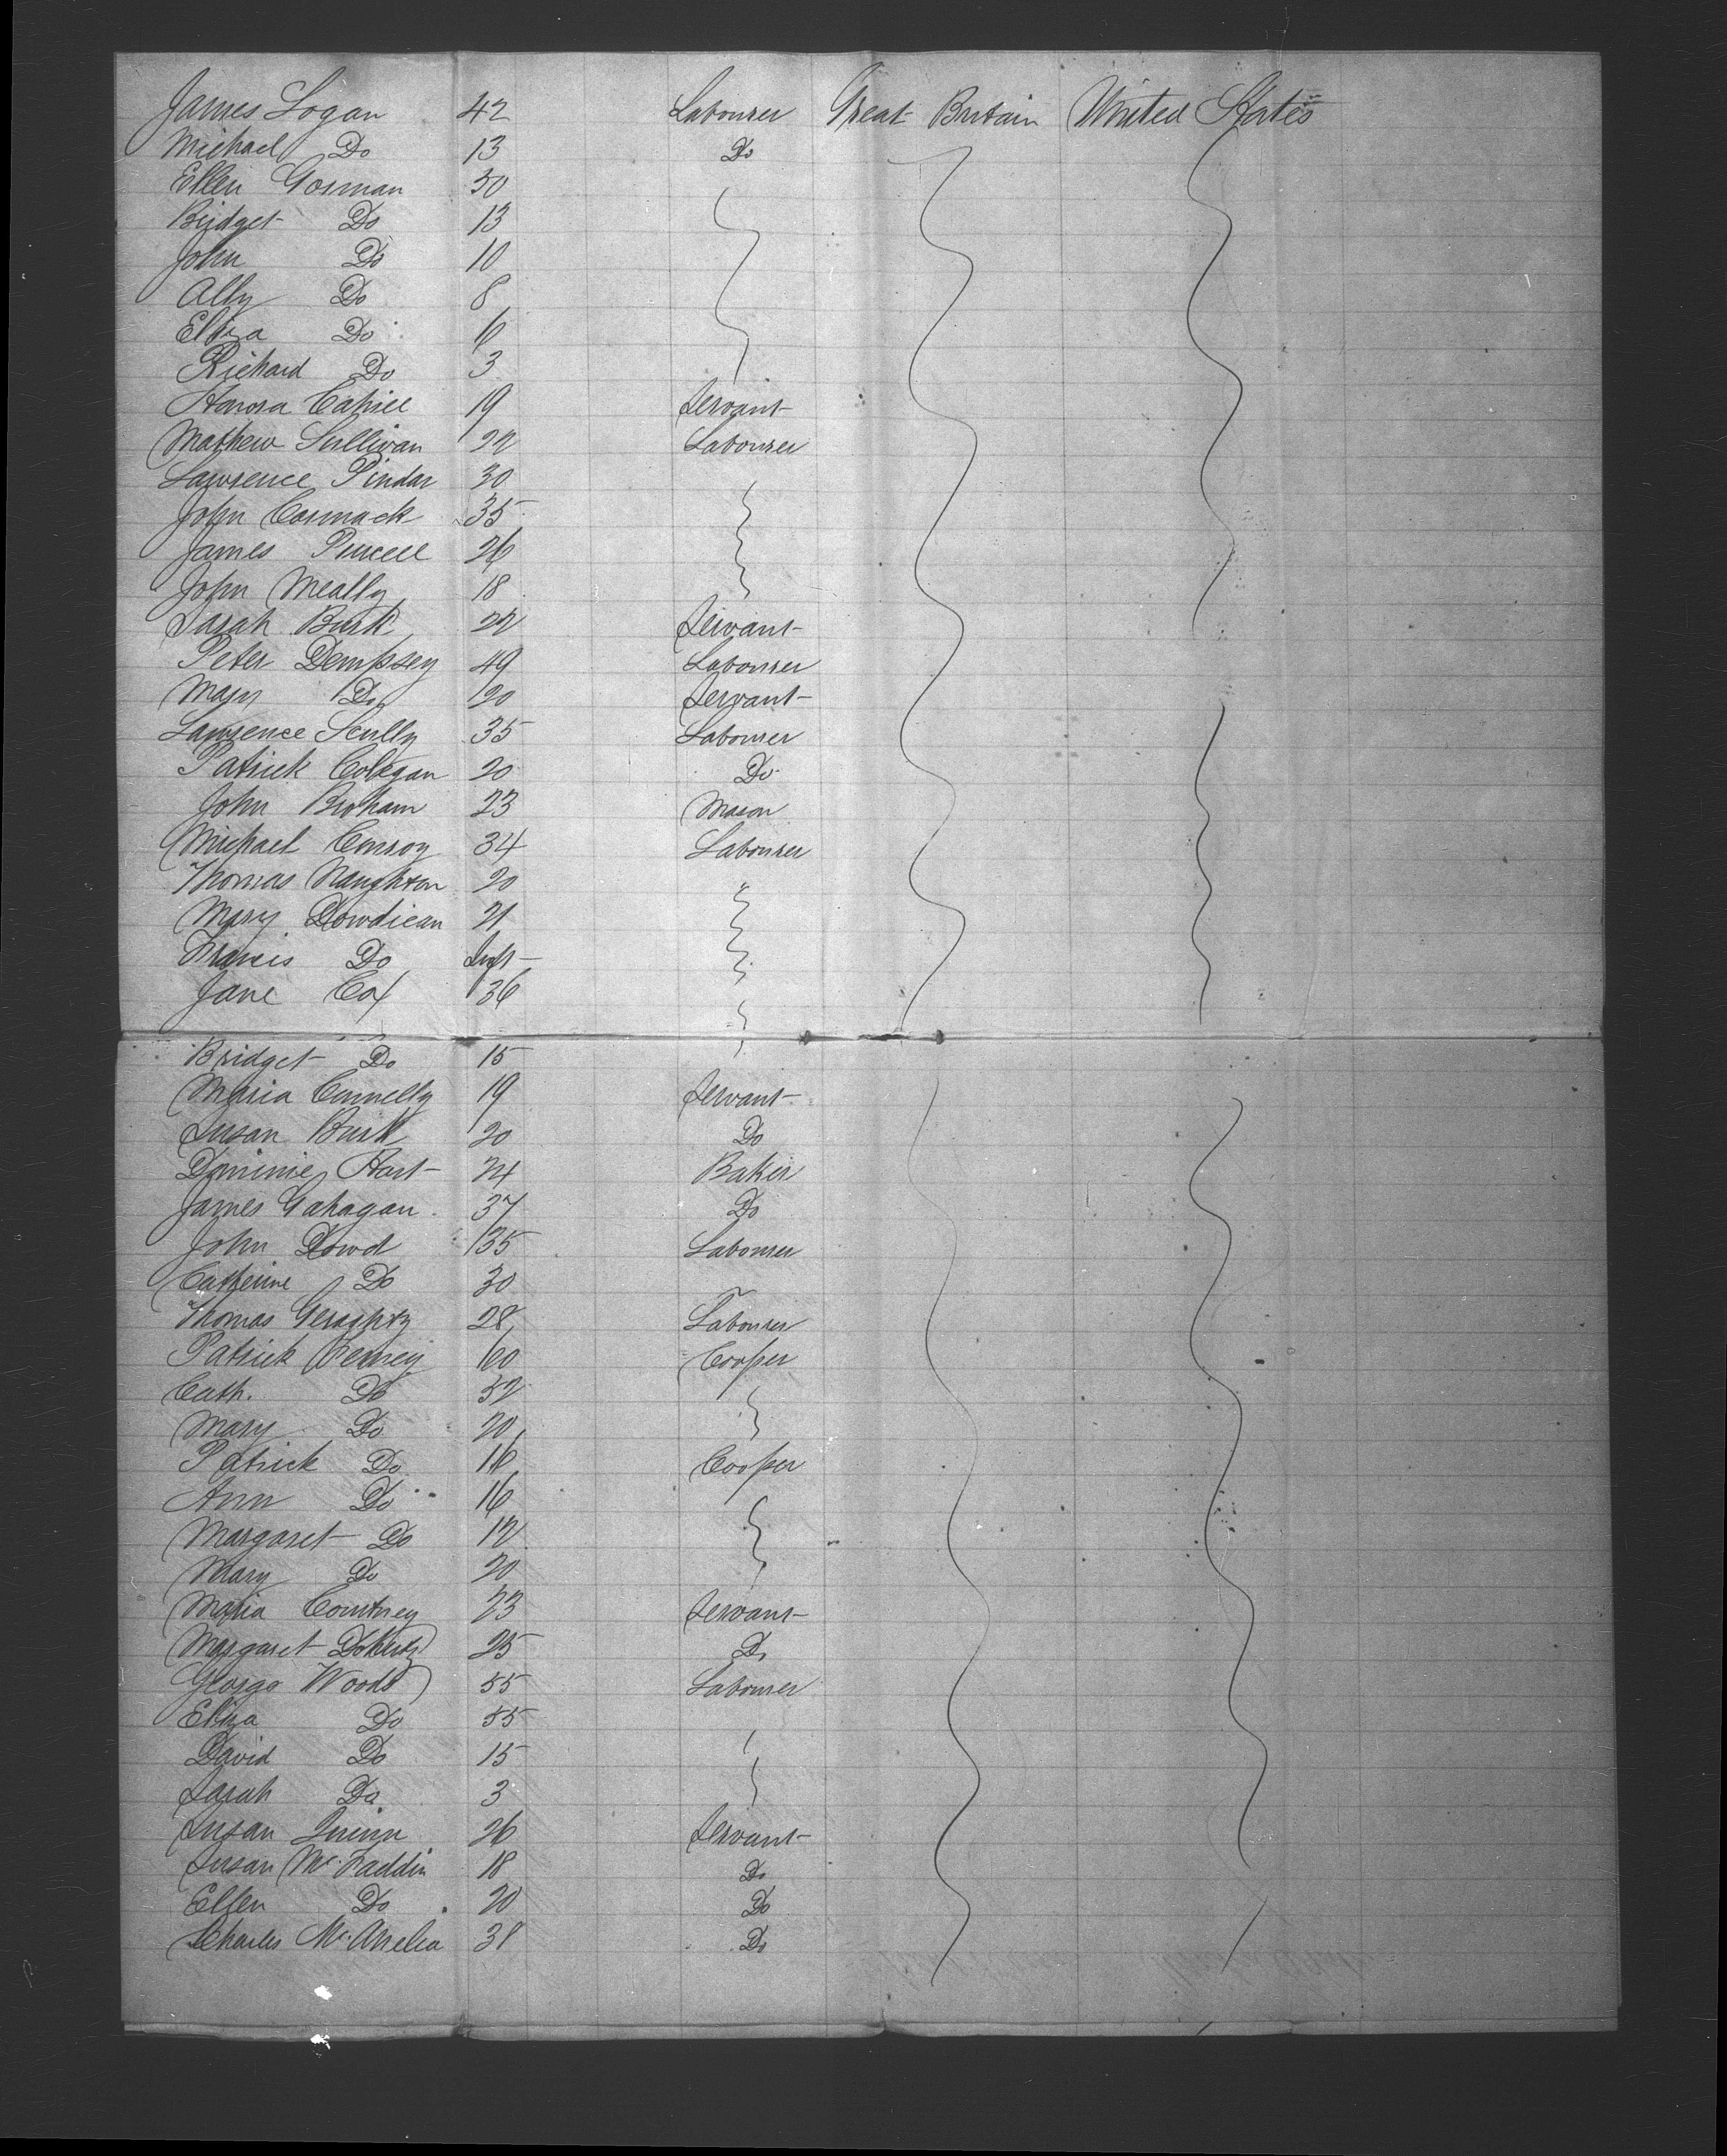 James Logan 42 Labourer Great Britain United States
Michael Do 13 Do
Ellen Gorman 30
Bridget Do 13
John Do 10
Ally Do 8
Eliza Do 6
Richard Do 3
Honora Cahill 19 Servant
Mathew Sullivan 22 Labourer
Lawrence Pindar 30
John Cormack 35
James Purcell 26
John Meally 18
Sarah Burk 22 Servant
Peter Dempsey 49 Labourer
Mary Do 20 Servant
Lawrence Scully 35 Labourer
Patrick Colegan 20 Do
John Broham 23 Mason
Michael Conroy 34 Labourer
Thomas Naughton 20
Mary Dowdican 21
Francis Do Inft
Jane Cox 36
Bridget Do 15
Maria Connelly 19 Servant
Susan Burk 20 Do
Dominic Hart 24 Baker
James Gahagan 37 Do
John Dowd 35 Labourer
Catherine Do 30
Thomas Geraghty 28 Labourer
Patrick 60 Cooper
Cath. Do 52
Mary Do 20
Patrick Do 16 Cooper
Ann Do 16
Margaret Do 12
Mary Do 20
Maria Courtney 23 Servant
Margaret Doherty 25 Do
George Woods 55 Labourer
Eliza Do 55
David Do 15
Sarah Do 3
Susan Quinn 26 Servant
Susan McFaddin 18 Do
Ellen Do 20 Do
Charles 38 Do